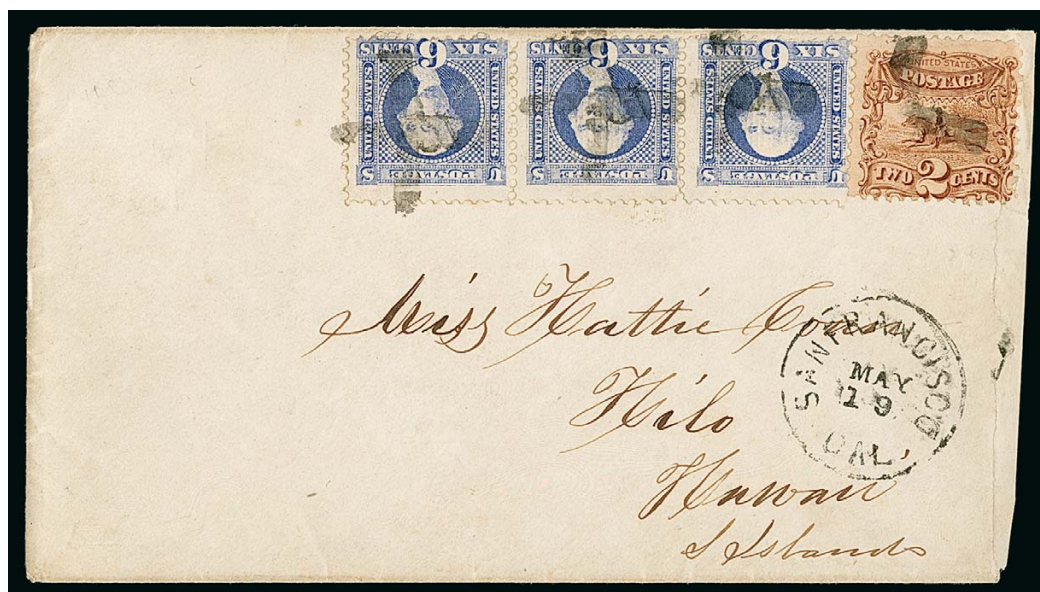 SIX 6 CENTS
UNITED STATES
UNITED STATES
U POSTAGE S
SIX 6 CENTS
UNITED STATES
UNITED STATES
U POSTAGE S
SIX 6 CENTS
UNITED STATES
UNITED STATES
U POSTAGE S
UNITED STATES
POSTAGE
TWO 2 CENTS
Miss Hattie Coan
Hilo
Hawaii
S Islands
SAN FRANCISCO
MAY
19
CAL.